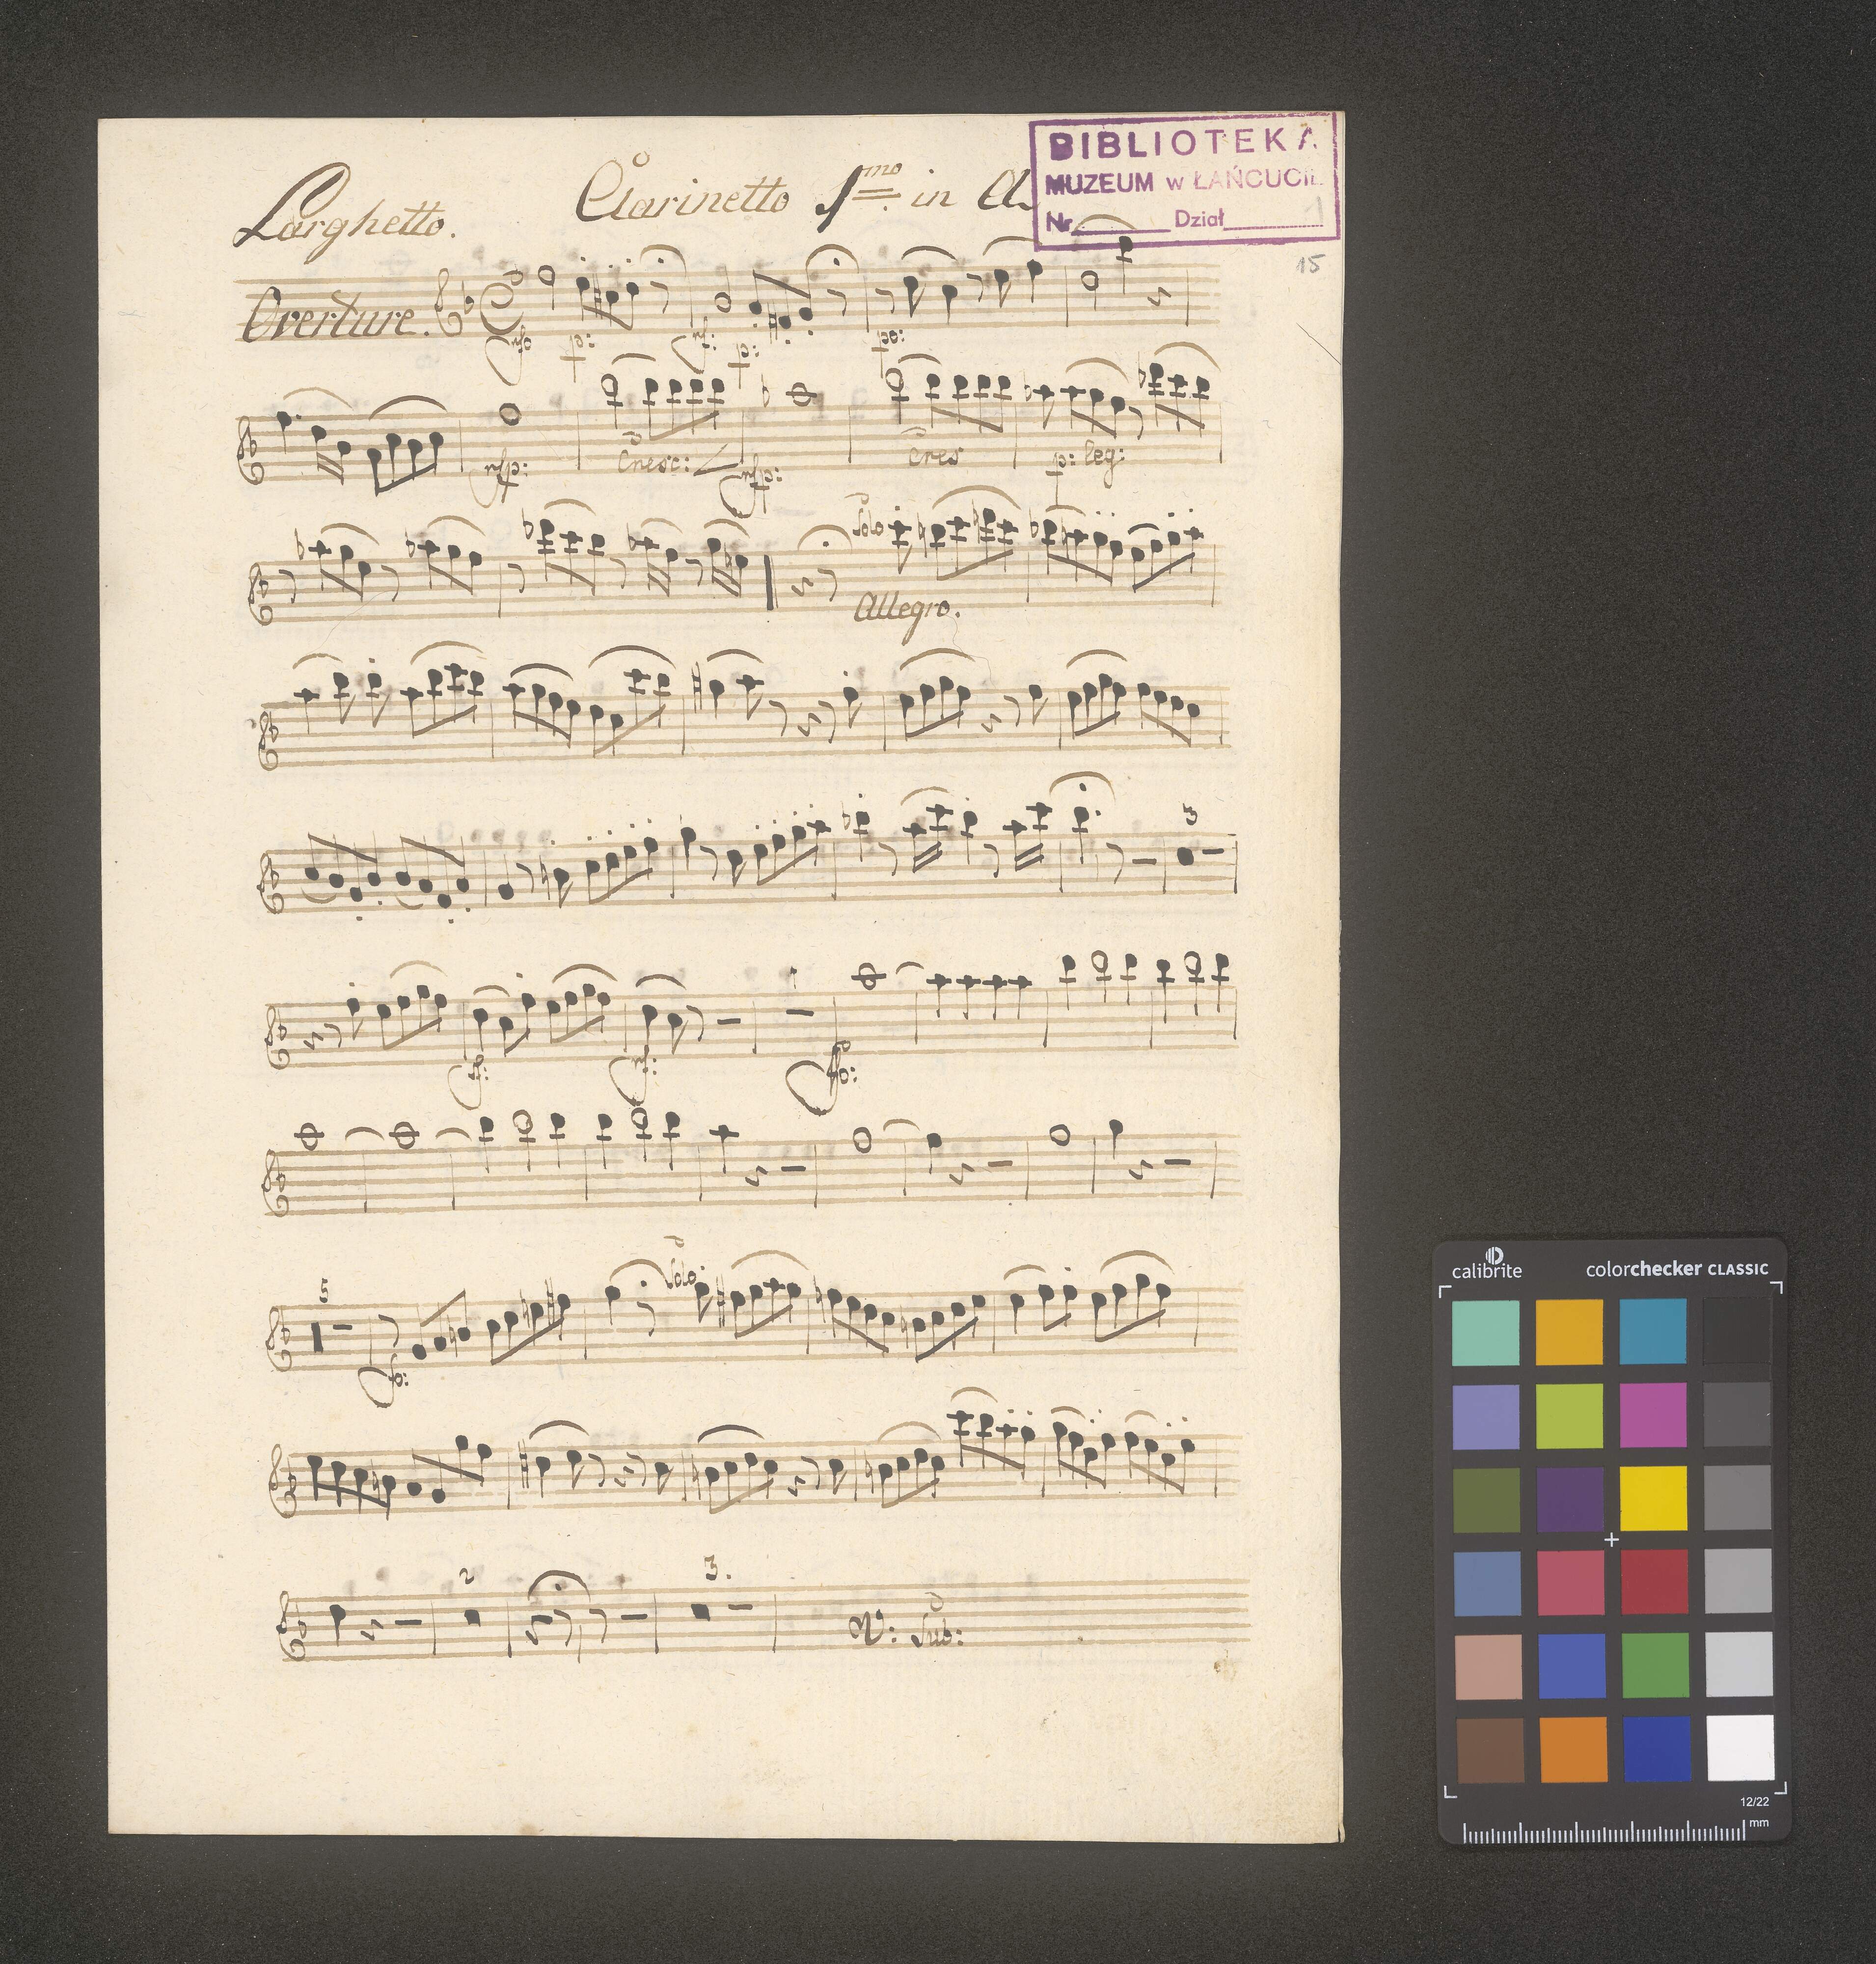 Larghetto.
Clarinetto 1mo in A
BIBLIOTEKA
MUZEUM w ŁAŃCUCIE
Nr Dział 1
15
Overture.
p: p: po:
cresc: cres p: leg:
Solo
Allegro.
3
fo:
5 Solo
fo:
2 3.
V: Sub:
calibrite colorchecker CLASSIC
12/22
mm